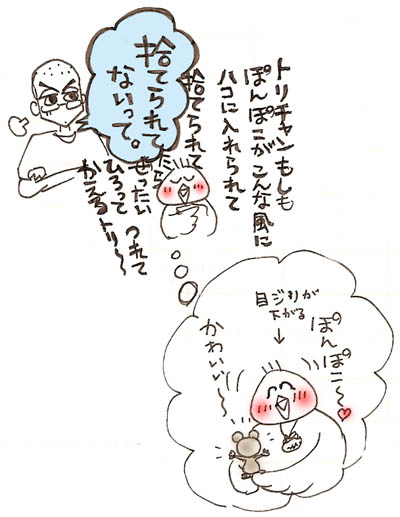 トリチャンもしも
ぽんぽこがこんな風に
ハコに入れられて
捨てられて
たら
ぜったい つれて
ひろって
かえるトリ〜〜
捨てられて
ないって。
ぽんぽこ〜〜
目ジリが
下がる
かわいい〜〜